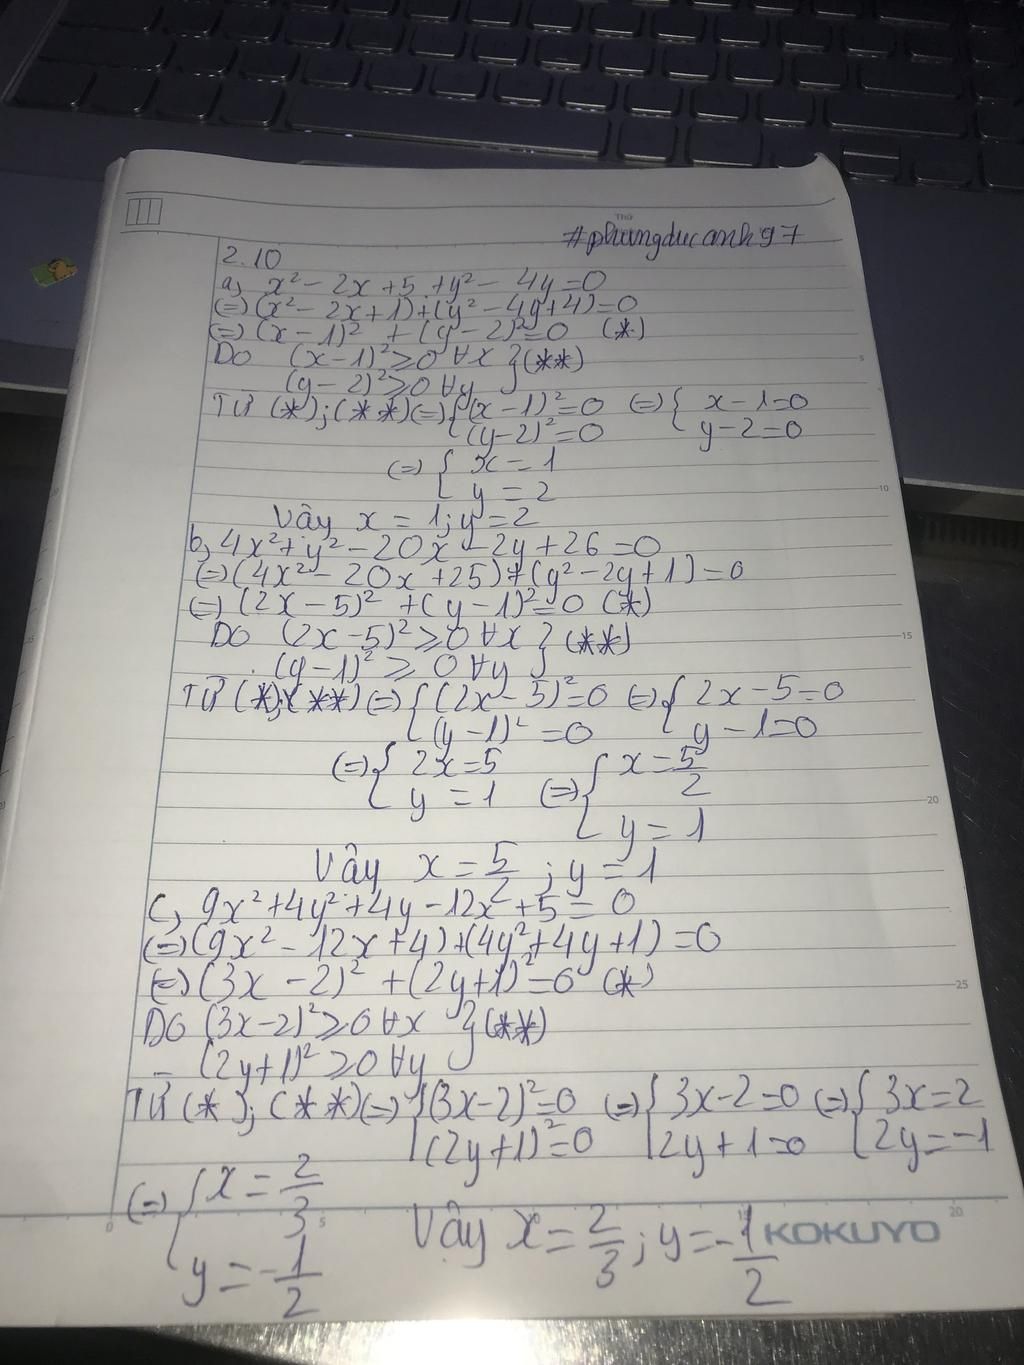 Thứ
#phungducanh97
2.10
a, x² - 2x + 5 + y² - 4y = 0
(=) (x² - 2x + 1) + (y² - 4y + 4) = 0
(=) (x - 1)² + (y - 2)² = 0 (*)
Do (x - 1)² ≥ 0 ∀x } (**)
(y - 2)² ≥ 0 ∀y
Từ (*); (**) (=) { (x - 1)² = 0 (=) { x - 1 = 0
(y - 2)² = 0 y - 2 = 0
(=) { x = 1
y = 2
Vậy x = 1; y = 2
b, 4x² + y² - 20x - 2y + 26 = 0
(=) (4x² - 20x + 25) + (y² - 2y + 1) = 0
(=) (2x - 5)² + (y - 1)² = 0 (*)
Do (2x - 5)² ≥ 0 ∀x } (**)
(y - 1)² ≥ 0 ∀y
Từ (*); (**) (=) { (2x - 5)² = 0 (=) { 2x - 5 = 0
(y - 1)² = 0 y - 1 = 0
(=) { 2x = 5 (=) { x = 5/2
y = 1 y = 1
Vậy x = 5/2 ; y = 1
c, 9x² + 4y² + 4y - 12x + 5 = 0
(=) (9x² - 12x + 4) + (4y² + 4y + 1) = 0
(=) (3x - 2)² + (2y + 1)² = 0 (*)
Do (3x - 2)² ≥ 0 ∀x } (**)
(2y + 1)² ≥ 0 ∀y
Từ (*); (**) (=) { (3x - 2)² = 0 (=) { 3x - 2 = 0 (=) { 3x = 2
(2y + 1)² = 0 2y + 1 = 0 2y = -1
(=) { x = 2/3
y = -1/2
Vậy x = 2/3 ; y = -1/2
KOKUYO
5
10
15
20
25
0 5 10 15 20